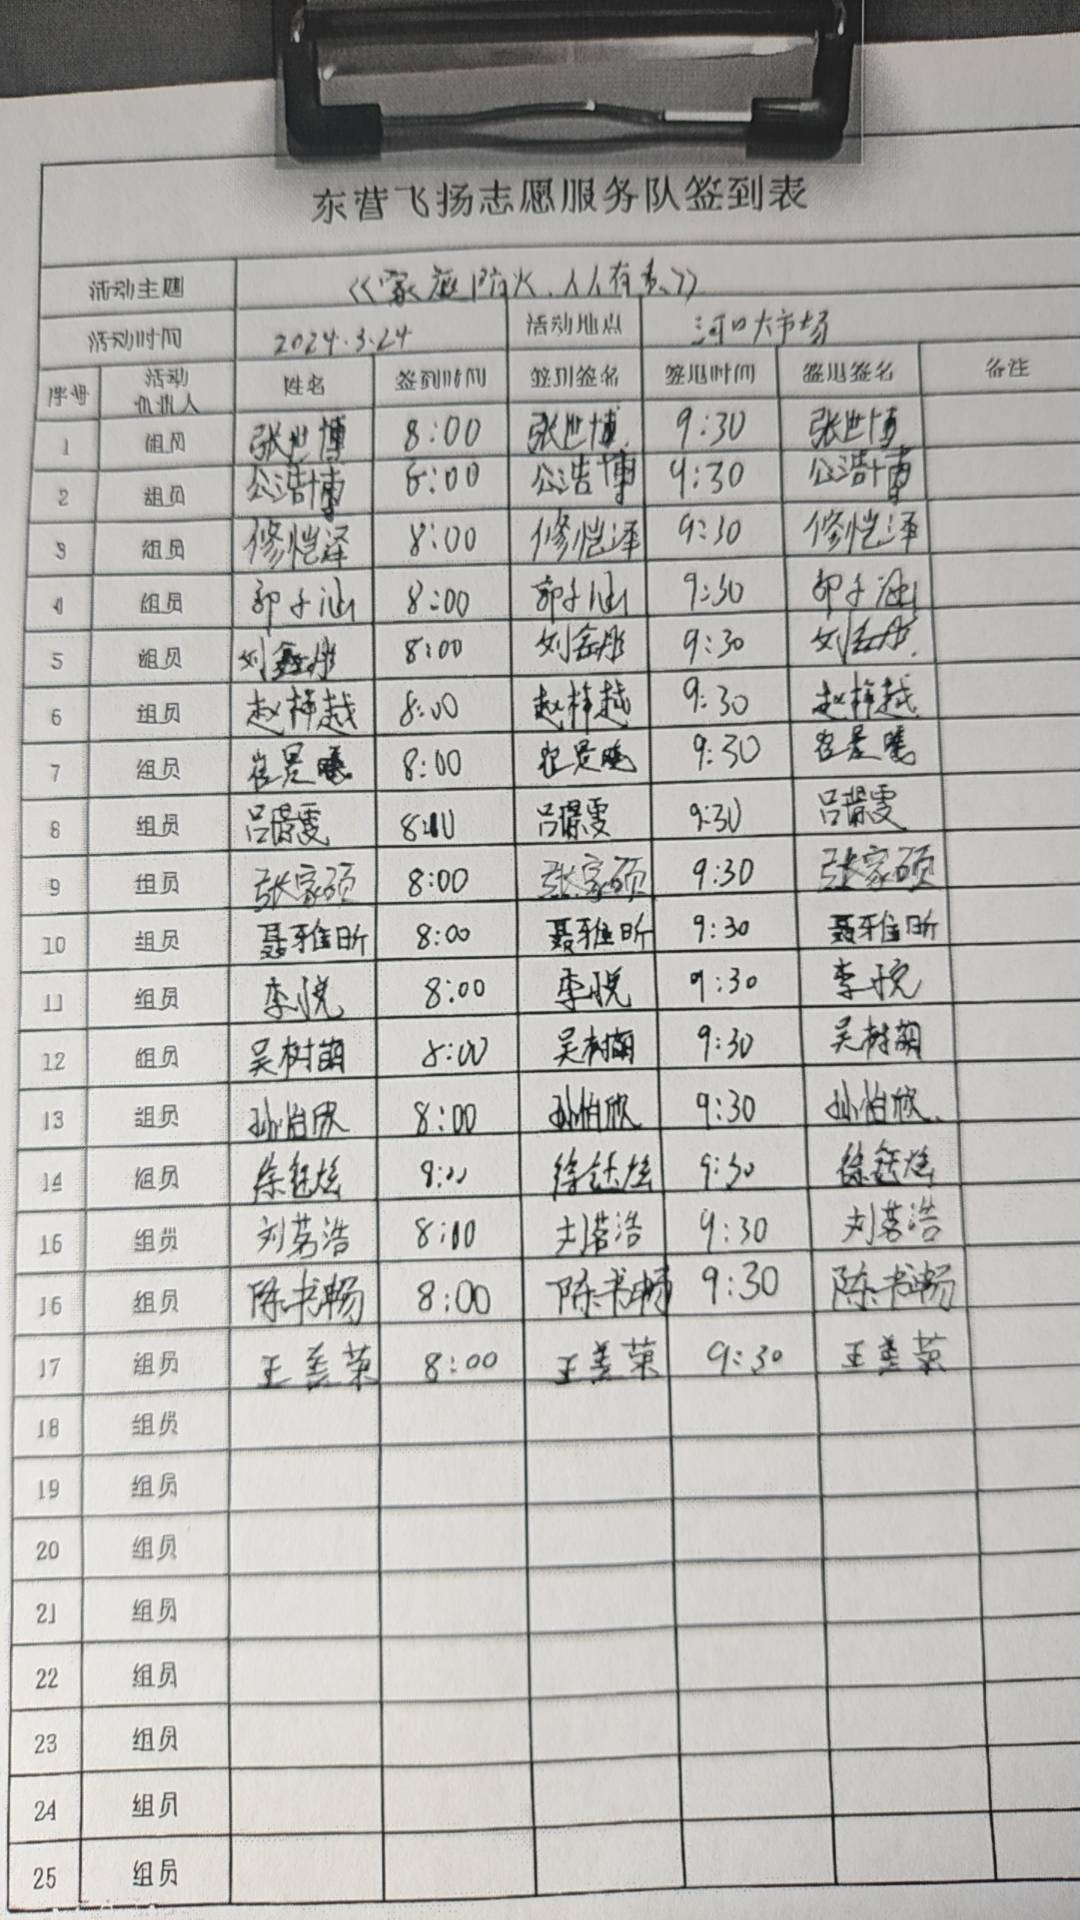 东营飞扬志愿服务队签到表
活动主题 《家庭防火.人人有责》
活动时间 2024.3.24 活动地点 河口大市场
序号 活动 姓名 签到时间 签到签名 签退时间 签退签名 备注
1 组员 张世博 8:00 张世博 9:30 张世博
2 组员 公浩博 8:00 公浩博 9:30 公浩博
3 组员 修恺泽 8:00 修恺泽 9:30 修恺泽
4 组员 郭子涵 8:00 郭子涵 9:30 郭子涵
5 组员 刘鑫彤 8:00 刘鑫彤 9:30 刘鑫彤
6 组员 赵梓越 8:00 赵梓越 9:30 赵梓越
7 组员 崔景曦 8:00 崔景曦 9:30 崔景曦
8 组员 8:00 9:30
9 组员 张家硕 8:00 张家硕 9:30 张家硕
10 组员 聂雅昕 8:00 聂雅昕 9:30 聂雅昕
11 组员 李悦 8:00 李悦 9:30 李悦
12 组员 吴树萌 8:00 吴树萌 9:30 吴树萌
13 组员 孙怡欣 8:00 孙怡欣 9:30 孙怡欣
14 组员 8:00 9:30
16 组员 刘茗浩 8:00 刘茗浩 9:30 刘茗浩
16 组员 陈书畅 8:00 陈书畅 9:30 陈书畅
17 组员 王善荣 8:00 王善荣 9:30 王善荣
18 组员
19 组员
20 组员
21 组员
22 组员
23 组员
24 组员
25 组员